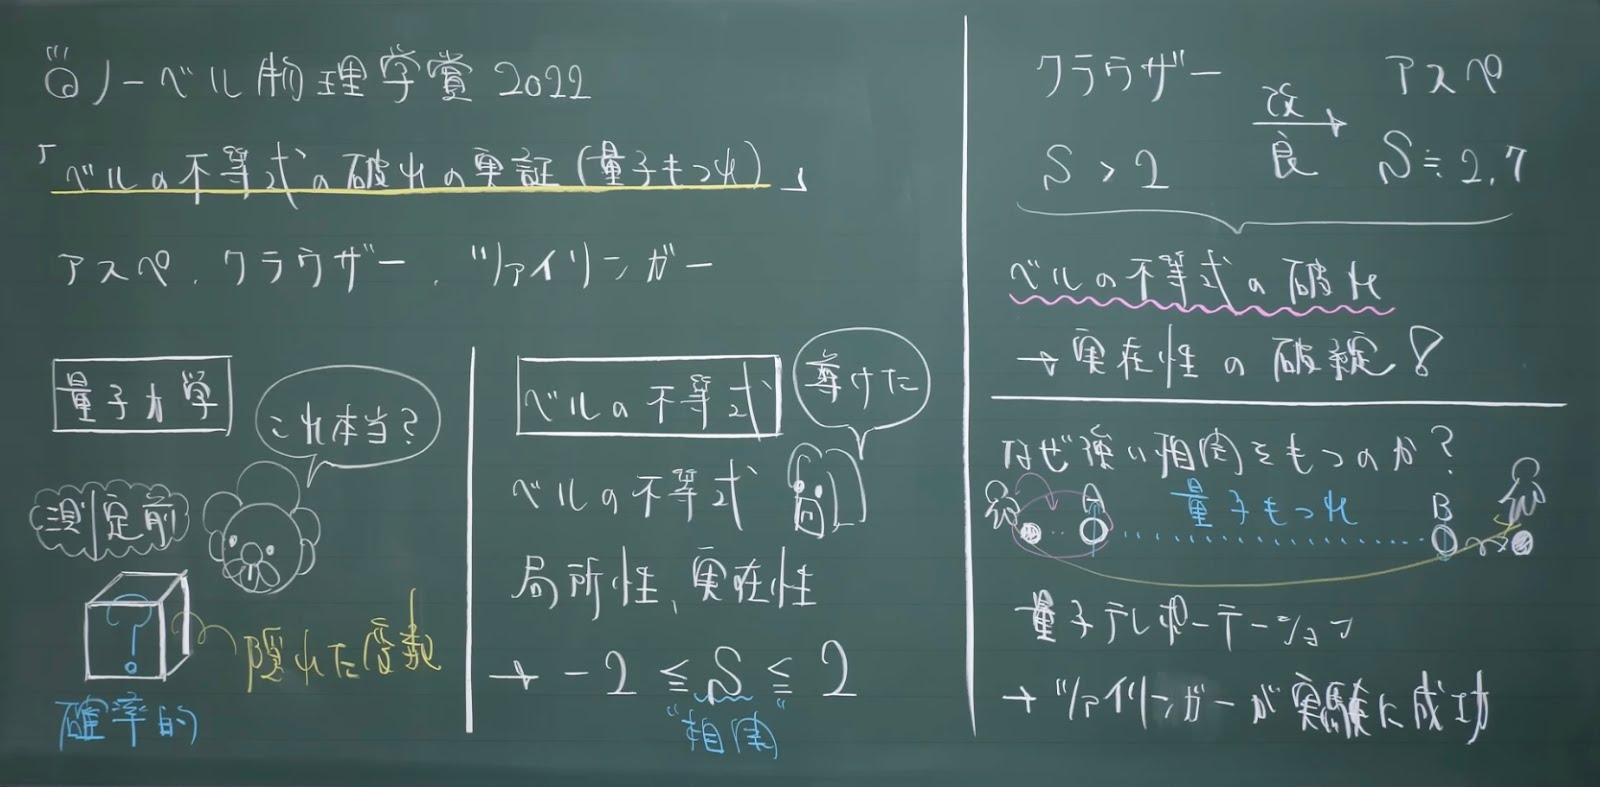 ノーベル物理学賞 2022
「ベルの不等式の破れの実証(量子もつれ)」
アスペ、クラウザー、ツァイリンガー
量子力学
これ本当?
測定前
?
隠れた変数
確率的
ベルの不等式
導けた
ベルの不等式
局所性、実在性
→ -2 ≦ S ≦ 2
"相関"
クラウザー 改良→ アスペ
S > 2 S≒2.7
ベルの不等式の破れ
→ 実在性の破綻!
なぜ強い相関をもつのか?
A 量子もつれ B
量子テレポーテーション
→ ツァイリンガーが実験に成功